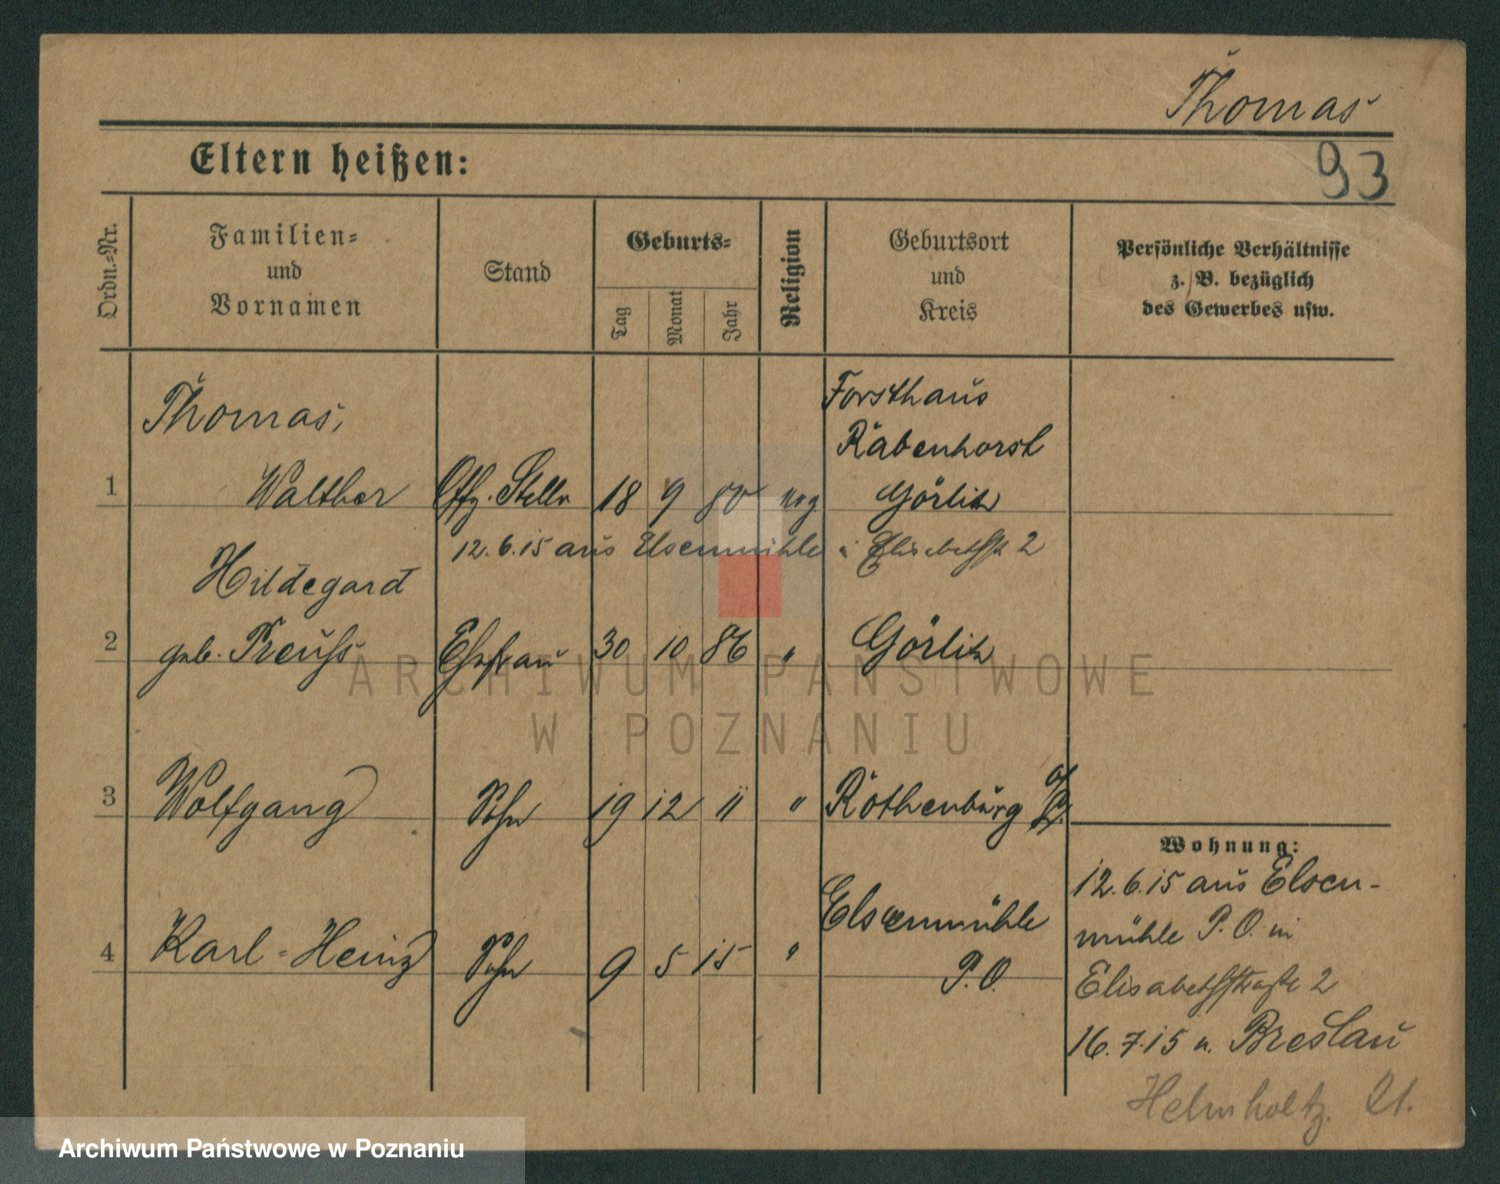 Thomas
93
Eltern heißen:
Ordn.-Nr.
Familien-
und
Vornamen
Stand
Geburts-
Tag
Monat
Jahr
Religion
Geburtsort
und
Kreis
Persönliche Verhältnisse
z. B. bezüglich
des Gewerbes usw.
Thomas,
Forsthaus
Rabenhorst
1 Walther Offz. Stellv 18 9 80 evg Görlitz
12.6.15 aus Elsenmühle i Elisabethstr 2
Hildegard
2 geb. Preuß Ehefrau 30 10 86 " Görlitz
3 Wolfgang Sohn 19 12 11 " Rothenburg
Wohnung:
12.6.15 aus Elsen-
mühle P.O. in
Elisabethstraße 2
16.7.15 n. Breslau
Helmholtz. 21.
Elsenmühle
4 Karl-Heinz Sohn 9 5 15 " P.O.
ARCHIWUM PAŃSTWOWE
W POZNANIU
Archiwum Państwowe w Poznaniu